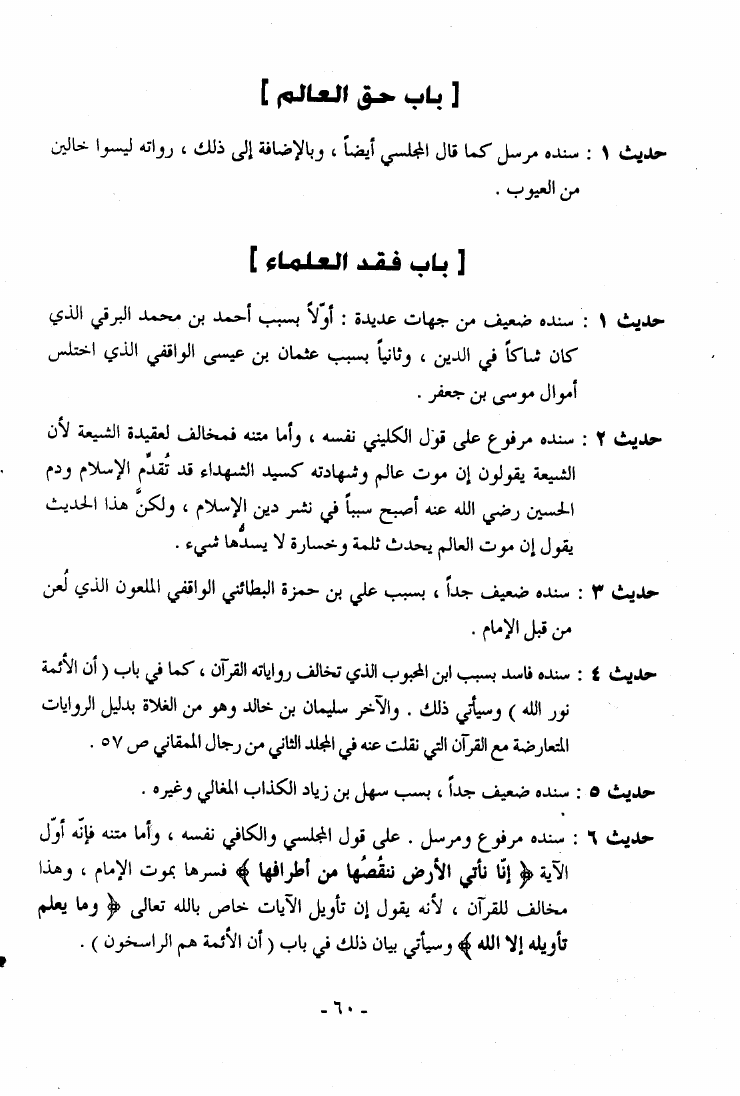 [ باب حق العالم ]
حديث ١ : سنده مرسل كما قال المجلسي أيضاً ، وبالإضافة إلى ذلك ، رواته ليسوا خالين
من العيوب .
[ باب فقد العلماء ]
حديث ١ : سنده ضعيف من جهات عديدة : أوّلاً بسبب أحمد بن محمد البرقي الذي
كان شاكاً في الدين ، وثانياً بسبب عثمان بن عيسى الواقفي الذي اختلس
أموال موسى بن جعفر .
حديث ٢ : سنده مرفوع على قول الكليني نفسه ، وأما متنه فمخالف لعقيدة الشيعة لأن
الشيعة يقولون إن موت عالم وشهادته كسيد الشهداء قد تُقدِّم الإسلام ودم
الحسين رضي الله عنه أصبح سبباً في نشر دين الإسلام ، ولكنَّ هذا الحديث
يقول إن موت العالم يحدث ثلمة وخسارة لا يسدُّها شيء .
حديث ٣ : سنده ضعيف جداً ، بسبب علي بن حمزة البطائني الواقفي الملعون الذي لُعن
من قبل الإمام .
حديث ٤ : سنده فاسد بسبب ابن المحبوب الذي تخالف رواياته القرآن ، كما في باب ( أن الأئمة
نور الله ) وسيأتي ذلك . والآخر سليمان بن خالد وهو من الغلاة بدليل الروايات
المتعارضة مع القرآن التي نقلت عنه في المجلد الثاني من رجال المقاني ص ٥٧ .
حديث ٥ : سنده ضعيف جداً ، بسب سهل بن زياد الكذاب المغالي وغيره .
حديث ٦ : سنده مرفوع ومرسل . على قول المجلسي والكافي نفسه ، وأما متنه فإنّه أوّل
الآية ﴿ إنّا نأتي الأرض ننقُصُها من أطرافها ﴾ فسرها بموت الإمام ، وهذا
مخالف للقرآن ، لأنه يقول إن تأويل الآيات خاص بالله تعالى ﴿ وما يعلم
تأويله إلا الله ﴾ وسيأتي بيان ذلك في باب ( أن الأئمة هم الراسخون ) .
- ٦٠ -